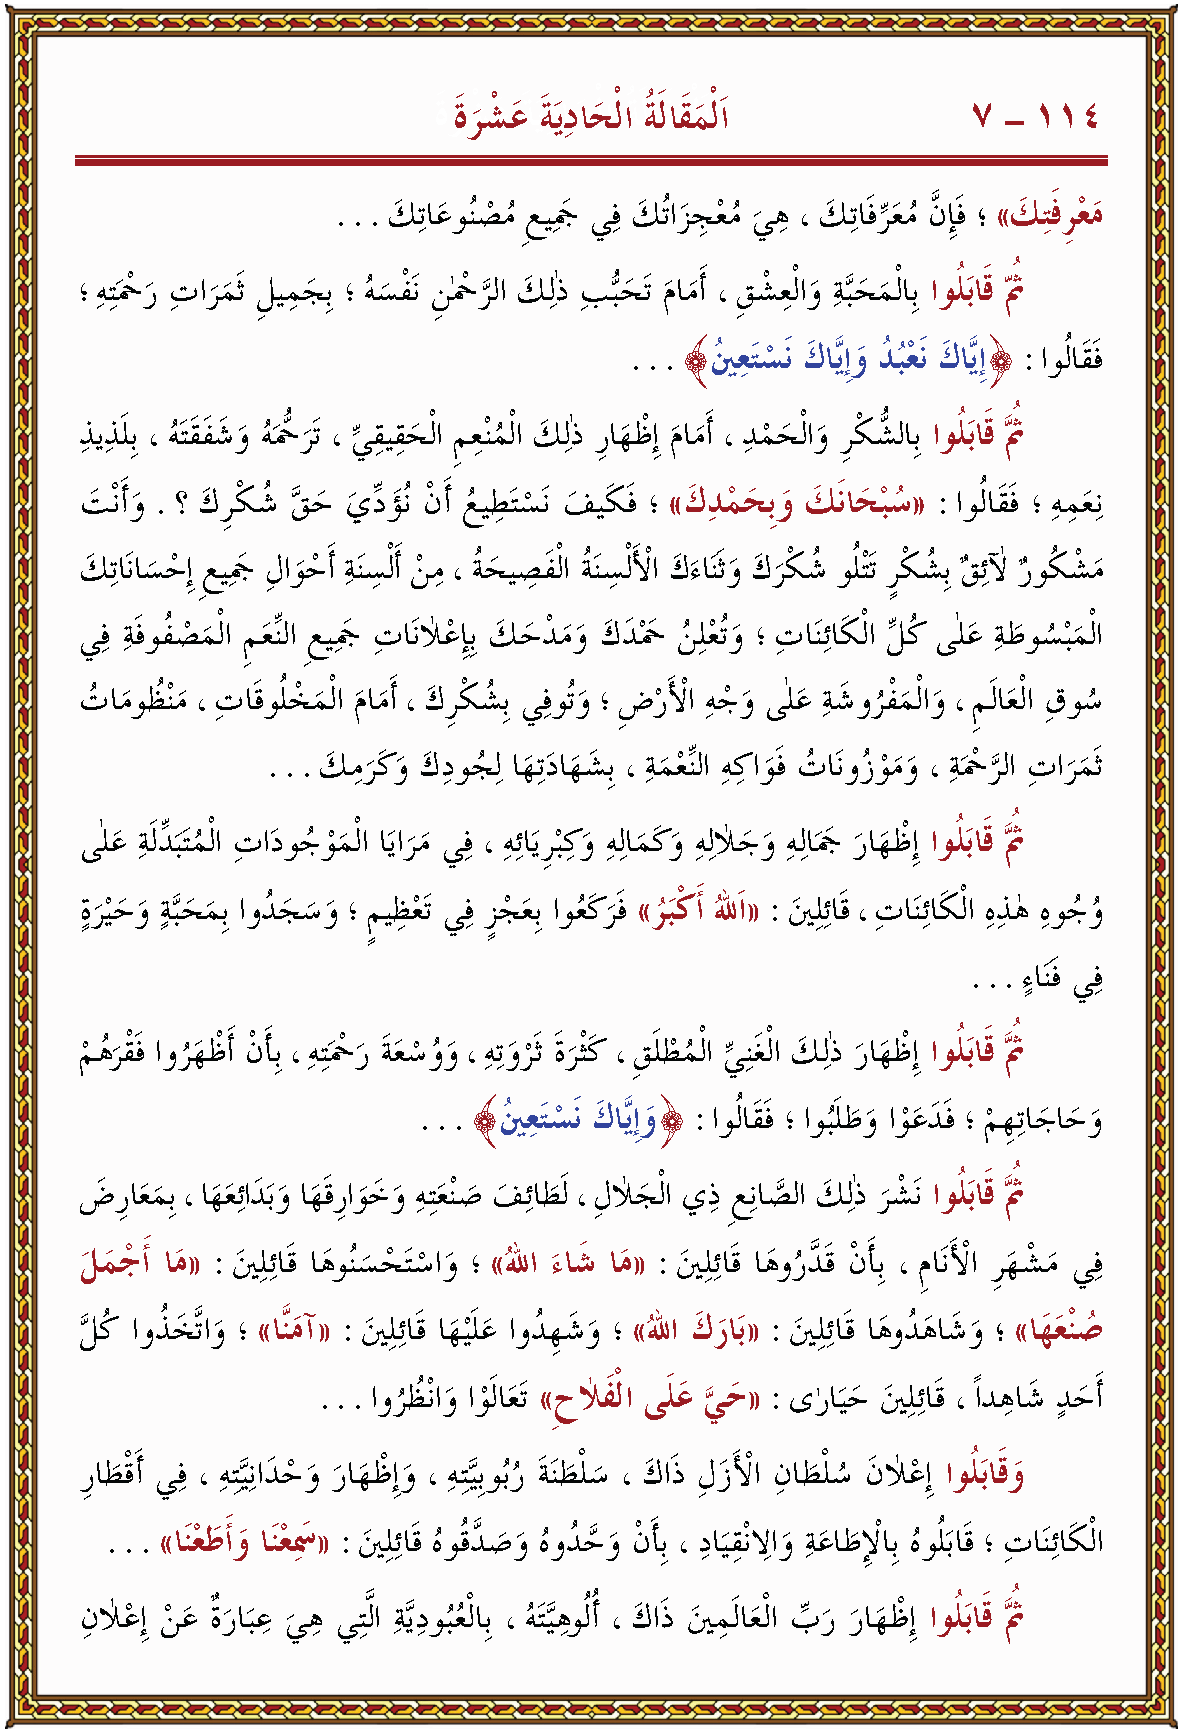 ١١٤ – ٧ اَلْمَقَالَةُ الْحَادِيَةَ عَشْرَةَ
مَعْرِفَتِكَ» ؛ فَإِنَّ مُعَرِّفَاتِكَ ، هِيَ مُعْجِزَاتُكَ فِي جَمِيعِ مُصْنُوعَاتِكَ . . .
ثُمّ قَابَلُوا بِالْمَحَبَّةِ وَالْعِشْقِ ، أَمَامَ تَحَبُّبِ ذٰلِكَ الرَّحْمٰنِ نَفْسَهُ ؛ بِجَمِيلِ ثَمَرَاتِ رَحْمَتِهِ ؛
فَقَالُوا : ﴿إِيَّاكَ نَعْبُدُ وَإِيَّاكَ نَسْتَعِينُ﴾ . . .
ثُمَّ قَابَلُوا بِالشُّكْرِ وَالْحَمْدِ ، أَمَامَ إِظْهَارِ ذٰلِكَ الْمُنْعِمِ الْحَقِيقِيِّ ، تَرَحُّمَهُ وَشَفَقَتَهُ ، بِلَذِيذِ
نِعَمِهِ ؛ فَقَالُوا : «سُبْحَانَكَ وَبِحَمْدِكَ» ؛ فَكَيفَ نَسْتَطِيعُ أَنْ نُؤَدِّيَ حَقَّ شُكْرِكَ ؟ . وَأَنْتَ
مَشْكُورٌ لٰٓائِقٌ بِشُكْرٍ تَتْلُو شُكْرَكَ وَثَنَاءَكَ الْأَلْسِنَةُ الْفَصِيحَةُ ، مِنْ أَلْسِنَةِ أَحْوَالِ جَمِيعِ إِحْسَانَاتِكَ
الْمَبْسُوطَةِ عَلٰى كُلِّ الْكَائِنَاتِ ؛ وَتُعْلِنُ حَمْدَكَ وَمَدْحَكَ بِإِعْلَانَاتِ جَمِيعِ النِّعَمِ الْمَصْفُوفَةِ فِي
سُوقِ الْعَالَمِ ، وَالْمَفْرُوشَةِ عَلٰى وَجْهِ الْأَرْضِ ؛ وَتُوفِي بِشُكْرِكَ ، أَمَامَ الْمَخْلُوقَاتِ ، مَنْظُومَاتُ
ثَمَرَاتِ الرَّحْمَةِ ، وَمَوْزُونَاتُ فَوَاكِهِ النِّعْمَةِ ، بِشَهَادَتِهَا لِجُودِكَ وَكَرَمِكَ . . .
ثُمَّ قَابَلُوا إِظْهَارَ جَمَالِهِ وَجَلَالِهِ وَكَمَالِهِ وَكِبْرِيَائِهِ ، فِي مَرَايَا الْمَوْجُودَاتِ الْمُتَبَدِّلَةِ عَلٰى
وُجُوهِ هٰذِهِ الْكَائِنَاتِ ، قَائِلِينَ : «اَللهُ أَكْبَرُ» فَرَكَعُوا بِعَجْزٍ فِي تَعْظِيمٍ ؛ وَسَجَدُوا بِمَحَبَّةٍ وَحَيْرَةٍ
فِي فَنَاءٍ . . .
ثُمَّ قَابَلُوا إِظْهَارَ ذٰلِكَ الْغَنِيِّ الْمُطْلَقِ ، كَثْرَةَ ثَرْوَتِهِ ، وَوُسْعَةَ رَحْمَتِهِ ، بِأَنْ أَظْهَرُوا فَقْرَهُمْ
وَحَاجَاتِهِمْ ؛ فَدَعَوْا وَطَلَبُوا ؛ فَقَالُوا : ﴿وَإِيَّاكَ نَسْتَعِينُ﴾ . . .
ثُمَّ قَابَلُوا نَشْرَ ذٰلِكَ الصَّانِعِ ذِي الْجَلَالِ ، لَطَائِفَ صَنْعَتِهِ وَخَوَارِقَهَا وَبَدَائِعَهَا ، بِمَعَارِضَ
فِي مَشْهَرِ الْأَنَامِ ، بِأَنْ قَدَّرُوهَا قَائِلِينَ : «مَا شَاءَ اللهُ» ؛ وَاسْتَحْسَنُوهَا قَائِلِينَ : «مَا أَجْمَلَ
صُنْعَهَا» ؛ وَشَاهَدُوهَا قَائِلِينَ : «بَارَكَ اللهُ» ؛ وَشَهِدُوا عَلَيْهَا قَائِلِينَ : «آمَنَّا» ؛ وَاتَّخَذُوا كُلَّ
أَحَدٍ شَاهِداً ، قَائِلِينَ حَيَارٰى : «حَيَّ عَلَى الْفَلَاحِ» تَعَالَوْا وَانْظُرُوا . . .
وَقَابَلُوا إِعْلَانَ سُلْطَانِ الْأَزَلِ ذَاكَ ، سَلْطَنَةَ رُبُوبِيَّتِهِ ، وَإِظْهَارَ وَحْدَانِيَّتِهِ ، فِي أَقْطَارِ
الْكَائِنَاتِ ؛ قَابَلُوهُ بِالْإِطَاعَةِ وَالْاِنْقِيَادِ ، بِأَنْ وَحَّدُوهُ وَصَدَّقُوهُ قَائِلِينَ : «سَمِعْنَا وَأَطَعْنَا» . . .
ثُمَّ قَابَلُوا إِظْهَارَ رَبِّ الْعَالَمِينَ ذَاكَ ، أُلُوهِيَّتَهُ ، بِالْعُبُودِيَّةِ الَّتِي هِيَ عِبَارَةٌ عَنْ إِعْلَانِ